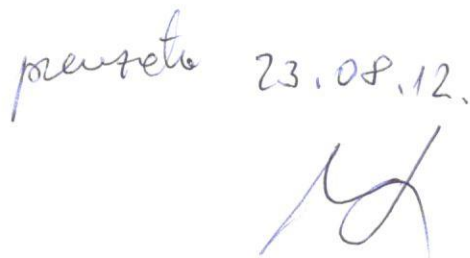 preuzeto 23.08.12.